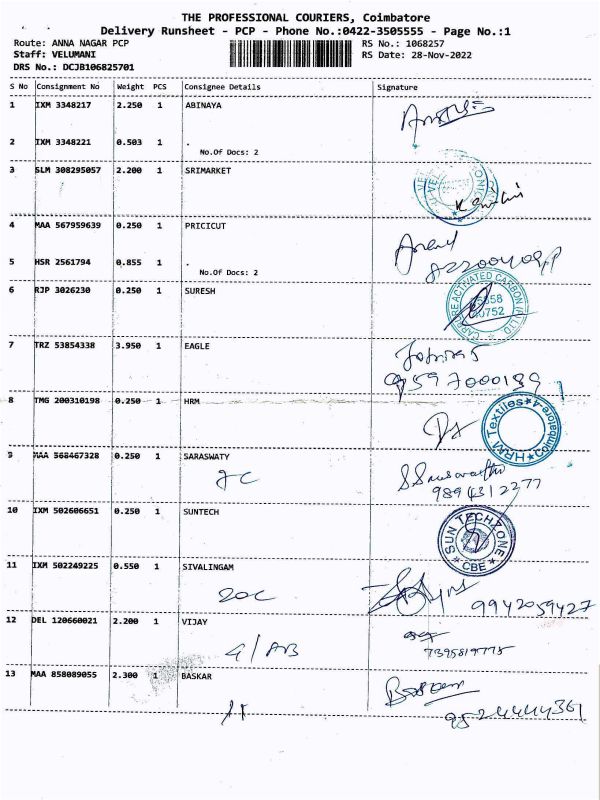 THE PROFESSIONAL COURIERS, Coimbatore
Delivery Runsheet - PCP - Phone No.:0422-3505555 - Page No.:1
Route: ANNA NAGAR PCP RS No.: 1068257
Staff: VELUMANI RS Date: 28-Nov-2022
DRS No.: DCJB106825701
S No Consignment No Weight PCS Consignee Details Signature
1 IXM 3348217 2.250 1 ABINAYA
2 IXM 3348221 0.503 1 .
No.Of Docs: 2
3 SLM 308295057 2.200 1 SRIMARKET
4 MAA 567959639 0.250 1 PRICICUT
5 HSR 2561794 0.855 1 .
No.Of Docs: 2
6 RJP 3026230 0.250 1 SURESH
ACTIVATED CARBON
7 TRZ 53854338 3.950 1 EAGLE
9597000189
8 TMG 200310198 0.250 1 HRM
HRM Textiles Coimbatore-4
9 MAA 568467328 0.250 1 SARASWATY
9894312277
10 IXM 502606651 0.250 1 SUNTECH
SUN TECHZONE CBE
11 IXM 502249225 0.550 1 SIVALINGAM
9942059427
12 DEL 120660021 2.200 1 VIJAY
4/AB
7395819775
13 MAA 858089055 2.300 1 BASKAR
9524444361